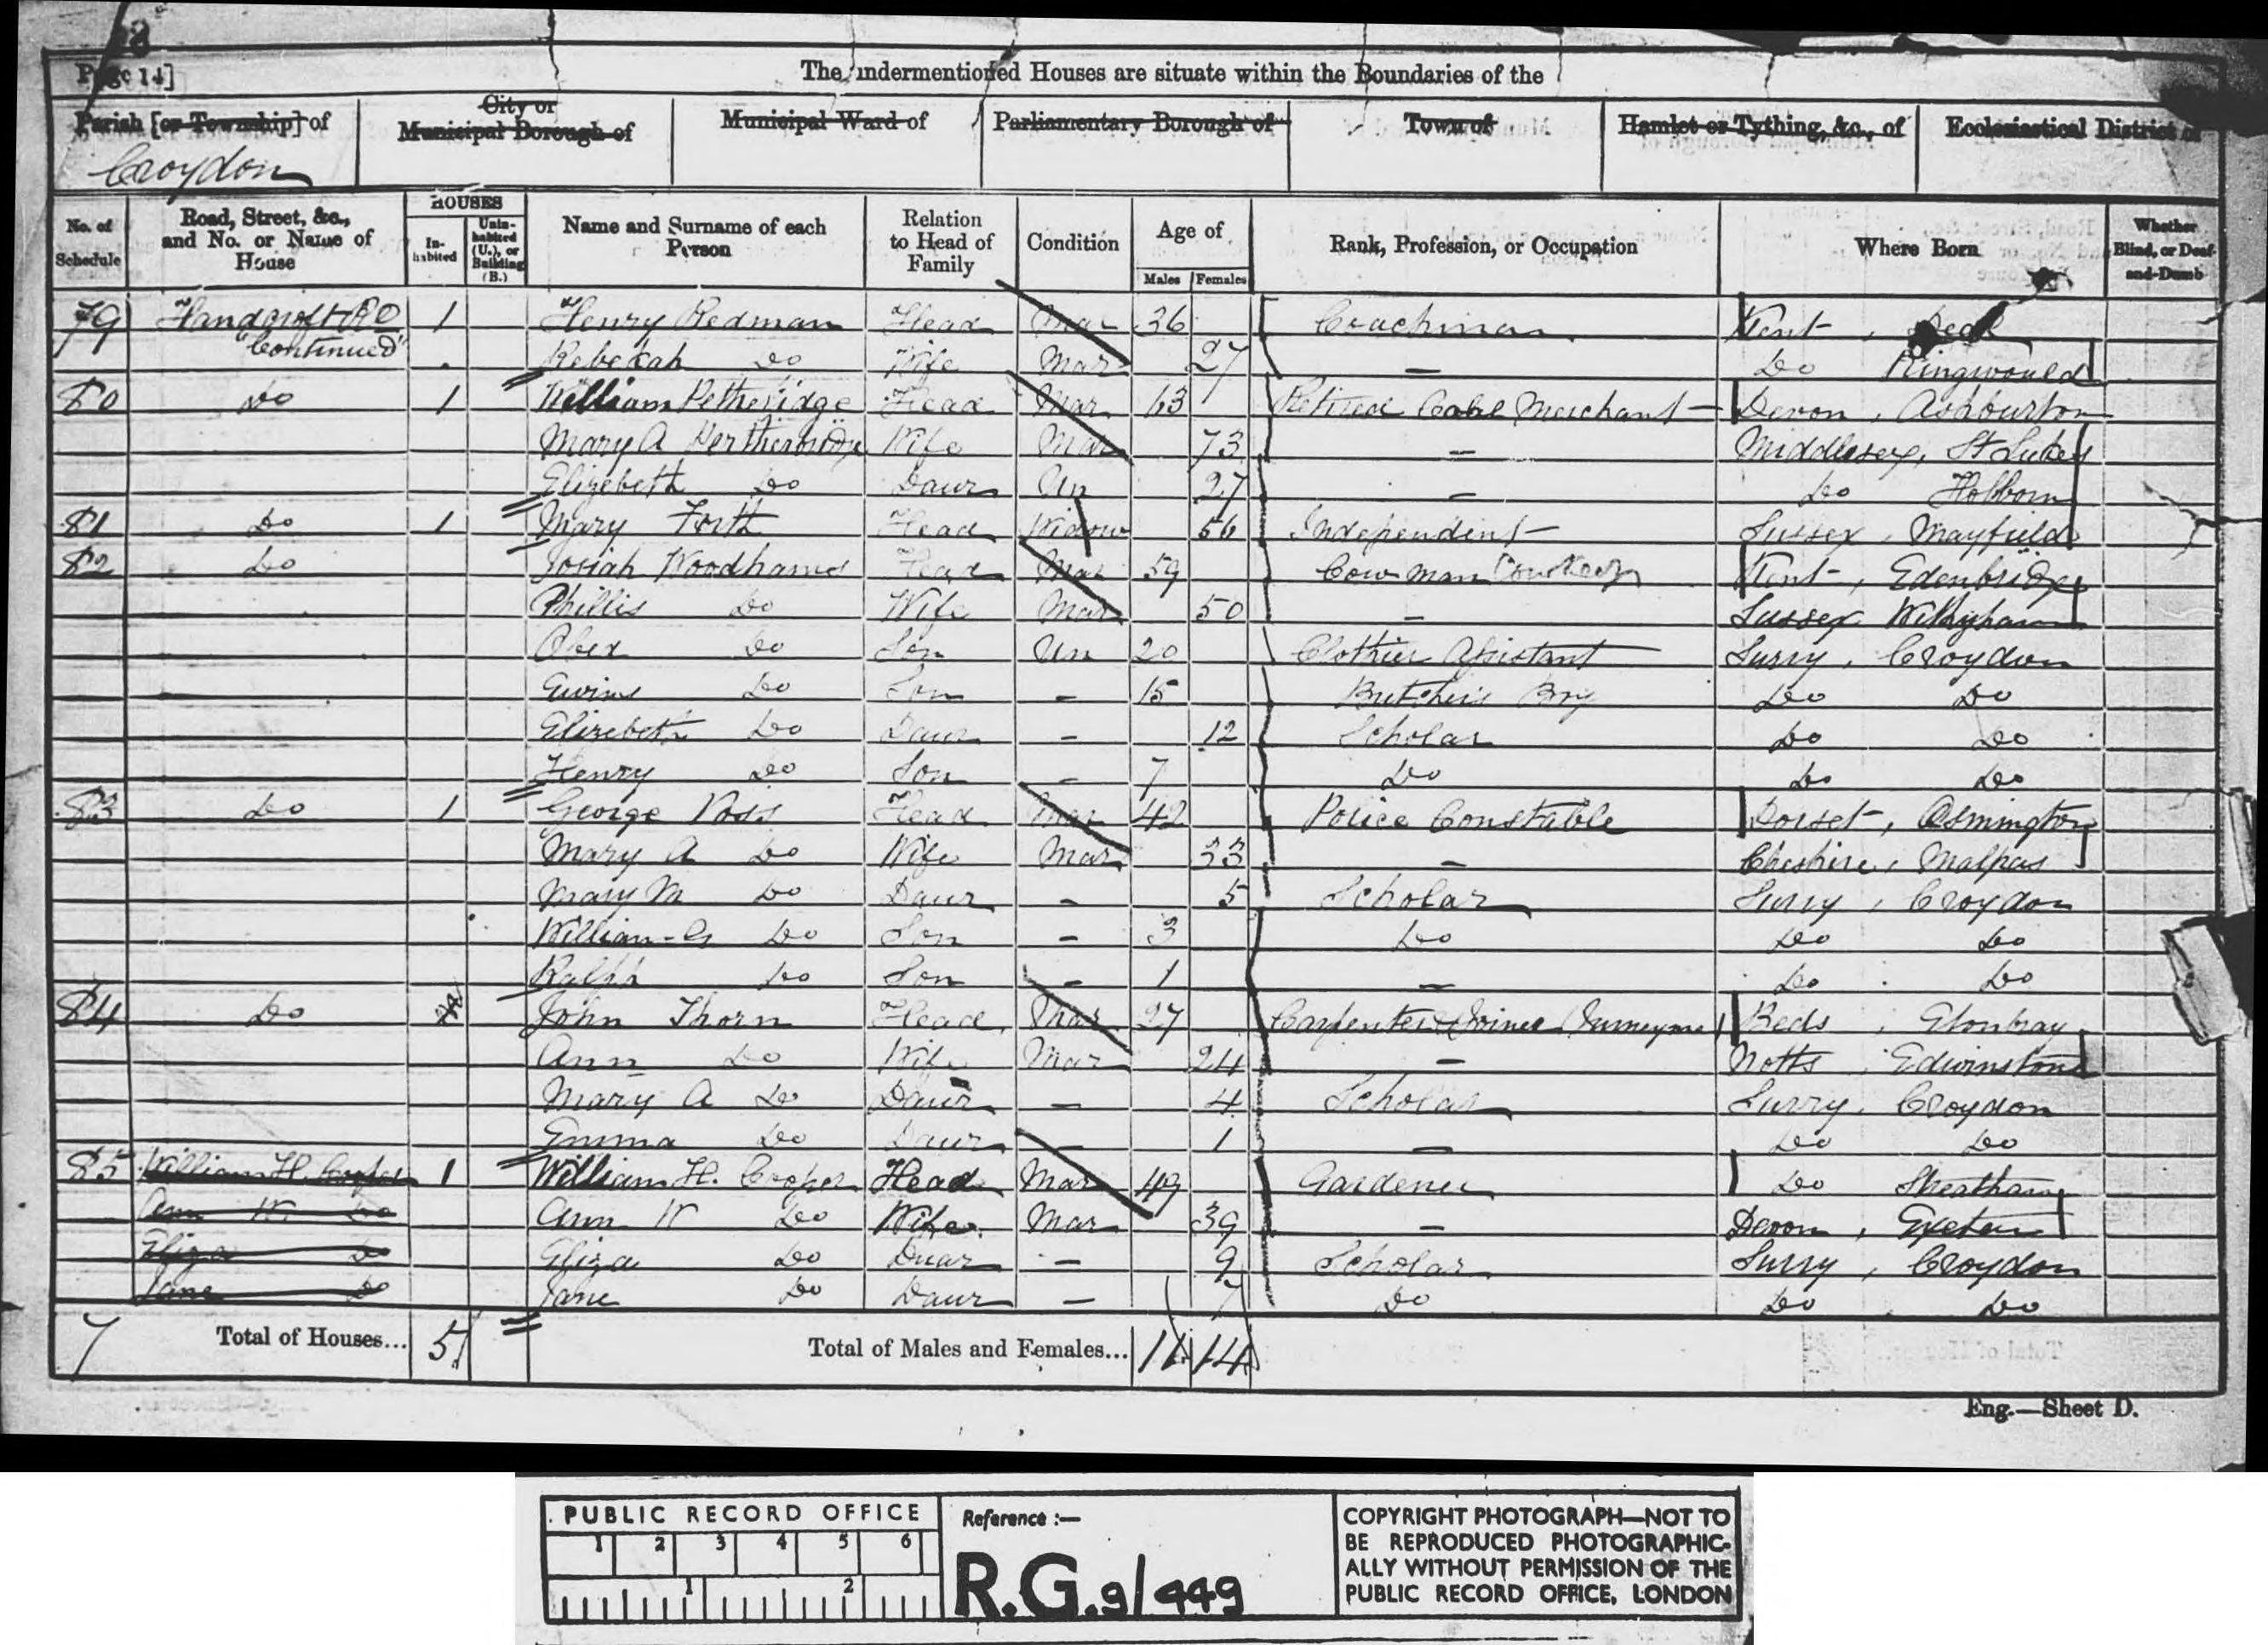 Page 14]
The undermentioned Houses are situate within the Boundaries of the
Parish [or Township] of
City or
Municipal Borough of
Municipal Ward of
Parliamentary Borough of
Town of
Hamlet or Tything, &c., of
Ecclesiastical District of
Croydon
No. of Schedule
Road, Street, &c., and No. or Name of House
HOUSES
In-habited
Unin-habited (U.), or Building (B.)
Name and Surname of each Person
Relation to Head of Family
Condition
Age of
Males
Females
Rank, Profession, or Occupation
Where Born
Whether Blind, or Deaf-and-Dumb
79 Handcroft RD 1 Henry Redman Head Mar 36 Coachman Kent, Deal
"Continued" Rebekah Do Wife Mar 27 — Do Ringwould
80 Do 1 William Petheridge Head Mar 63 Retired Merchant — Devon, Ashburton
Mary A Wife Mar 73 — Middlesex, St Lukes
Elizebeth Do Daur Un 27 — Do Holborn
81 Do 1 Mary Forth Head Widow 56 Independent — Sussex, Mayfield
82 Do Josiah Woodhams Head Mar 59 Cow man Kent, Edenbridge
Phillis Do Wife Mar 50 — Sussex Withyham
Do Son Un 20 Clothier Assistant Surry, Croydon
Do Son - 15 Butcher's Boy Do Do
Elizebeth Do Daur - 12 Scholar Do Do
Henry Do Son - 7 Do Do Do
83 Do 1 George Voss Head Mar 42 Police Constable Dorset, Osmington
Mary A Do Wife Mar 33 — Cheshire, Malpas
Mary M Do Daur - 5 Scholar Surry, Croydon
William-G Do Son - 3 Do Do Do
Ralph Do Son - 1 — Do Do
84 Do John Thorn Head Mar 27 Carpenter & Joiner Beds, Etonbray
Ann Do Wife Mar 24 — Notts Edwinstone
Mary A Do Daur — 4 Scholar Surry, Croydon
Emma Do Daur — 1 — Do Do
85 William H. Cooper 1 William H. Cooper Head Mar 49 Gardener Do Streatham
Ann W Do Ann W Do Wife Mar 39 — Devon, Exeter
Eliza Do Eliza Do Duar — 9 Scholar Surry, Croydon
Jane Do Jane Do Daur — 7 Do Do Do
7 Total of Houses... 5 Total of Males and Females... 11 14
Eng.—Sheet D.
PUBLIC RECORD OFFICE
1 2 3 4 5 6
1 2
Reference :—
R.G. 9/449
COPYRIGHT PHOTOGRAPH—NOT TO
BE REPRODUCED PHOTOGRAPHIC-
ALLY WITHOUT PERMISSION OF THE
PUBLIC RECORD OFFICE, LONDON